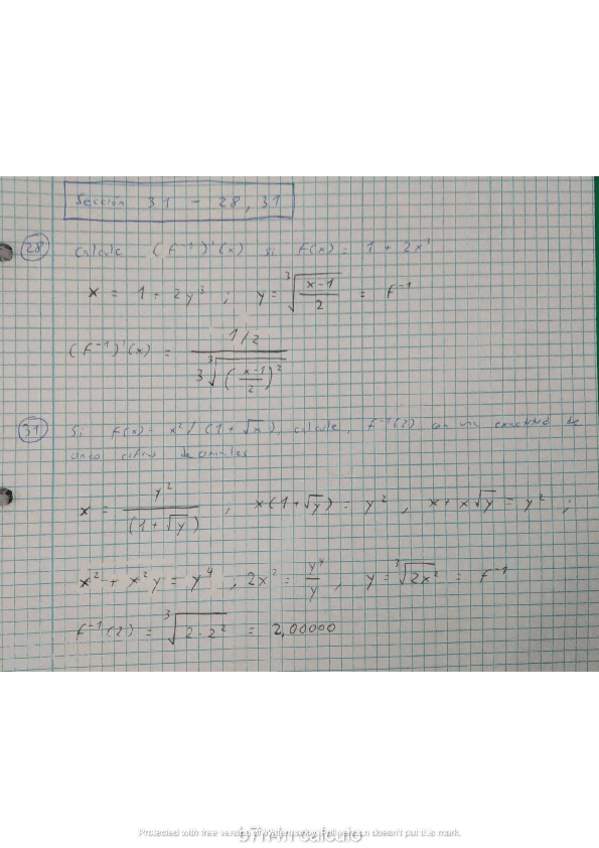 Sección 31 - 28, 31
28 Calcule (f⁻¹)'(x) si f(x) = 1 + 2x³
x = 1 + 2y³ ; y = ∛((x-1)/2) = f⁻¹
(f⁻¹)'(x) = (1/2) / (3∛((x-1)/2)²)
31 Si f(x) = x² / (1 + √x), calcule, f⁻¹(2) con una exactitud de
cinco cifras decimales
x = y² / (1 + √y) , x(1 + √y) = y² , x + x√y = y² ;
x² + x²y = y⁴ , 2x² = y⁴/y , y = ∛(2x²) = f⁻¹
f⁻¹(2) = ∛(2·2²) = 2,00000
Protected with free version of Watermarkly. Full version doesn't put this mark.